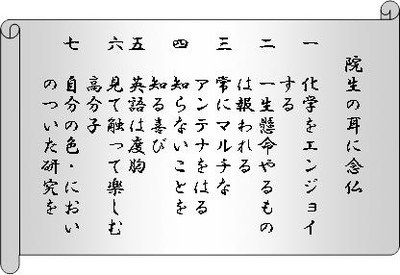 院生の耳に念仏
一 化学をエンジョイ
する
二 一生懸命やるもの
は報われる
三 常にマルチな
アンテナをはる
四 知らないことを
知る喜び
五 英語は度胸
六 見て触って楽しむ
高分子
七 自分の色・におい
のついた研究を